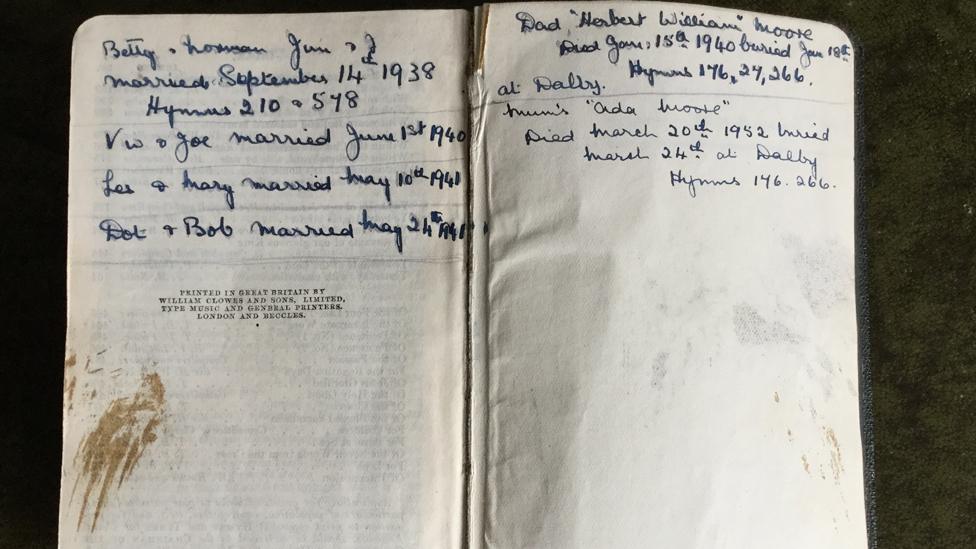 Betty & Norman Jim & J
married September 14th 1938
Hymns 210 & 578
Viv & Joe married June 1st 1940
Les & Mary married May 10th 1941
Dot & Bob married May 24th 1941
PRINTED IN GREAT BRITAIN BY
WILLIAM CLOWES AND SONS, LIMITED,
TYPE MUSIC AND GENERAL PRINTERS.
LONDON AND BECCLES.
Dad "Herbert William" Moore
Died Jan: 15th 1940 buried Jan 18th
Hymns 176, 27, 266.
at Dalby.
Mum's "Ada Moore"
Died March 20th 1952 buried
March 24th at Dalby
Hymns 176. 266.